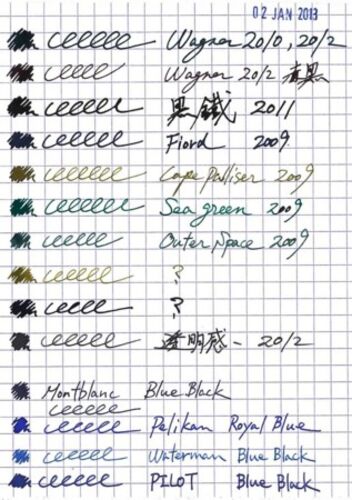 02 JAN 2013
Wagner 2010, 2012
Wagner 2012 真黑
黑鐵 2011
Fiord 2009
Cape Palliser 2009
Sea green 2009
Outer Space 2009
?
?
透明感 - 2012
Montblanc Blue Black
Pelikan Royal Blue
Waterman Blue Black
PILOT Blue Black